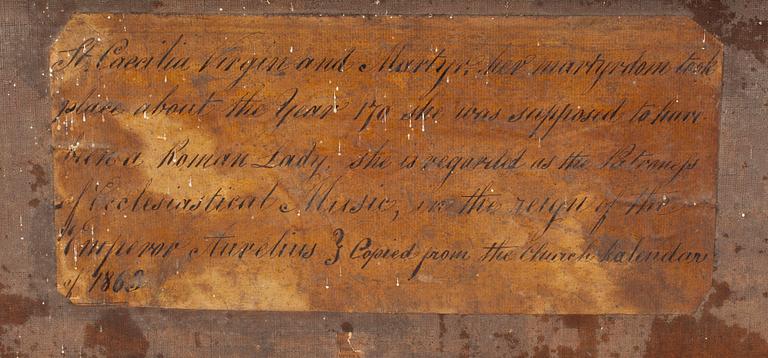 St. Caecilia Virgin and Martyr, her martyrdom took
place about the Year 170 she was supposed to have
been a Roman Lady. she is regarded as the Patroness
of Ecclesiastical Music, in the reign of the
Emperor Aurelius } Copied from the Church Kalendar
of 1863